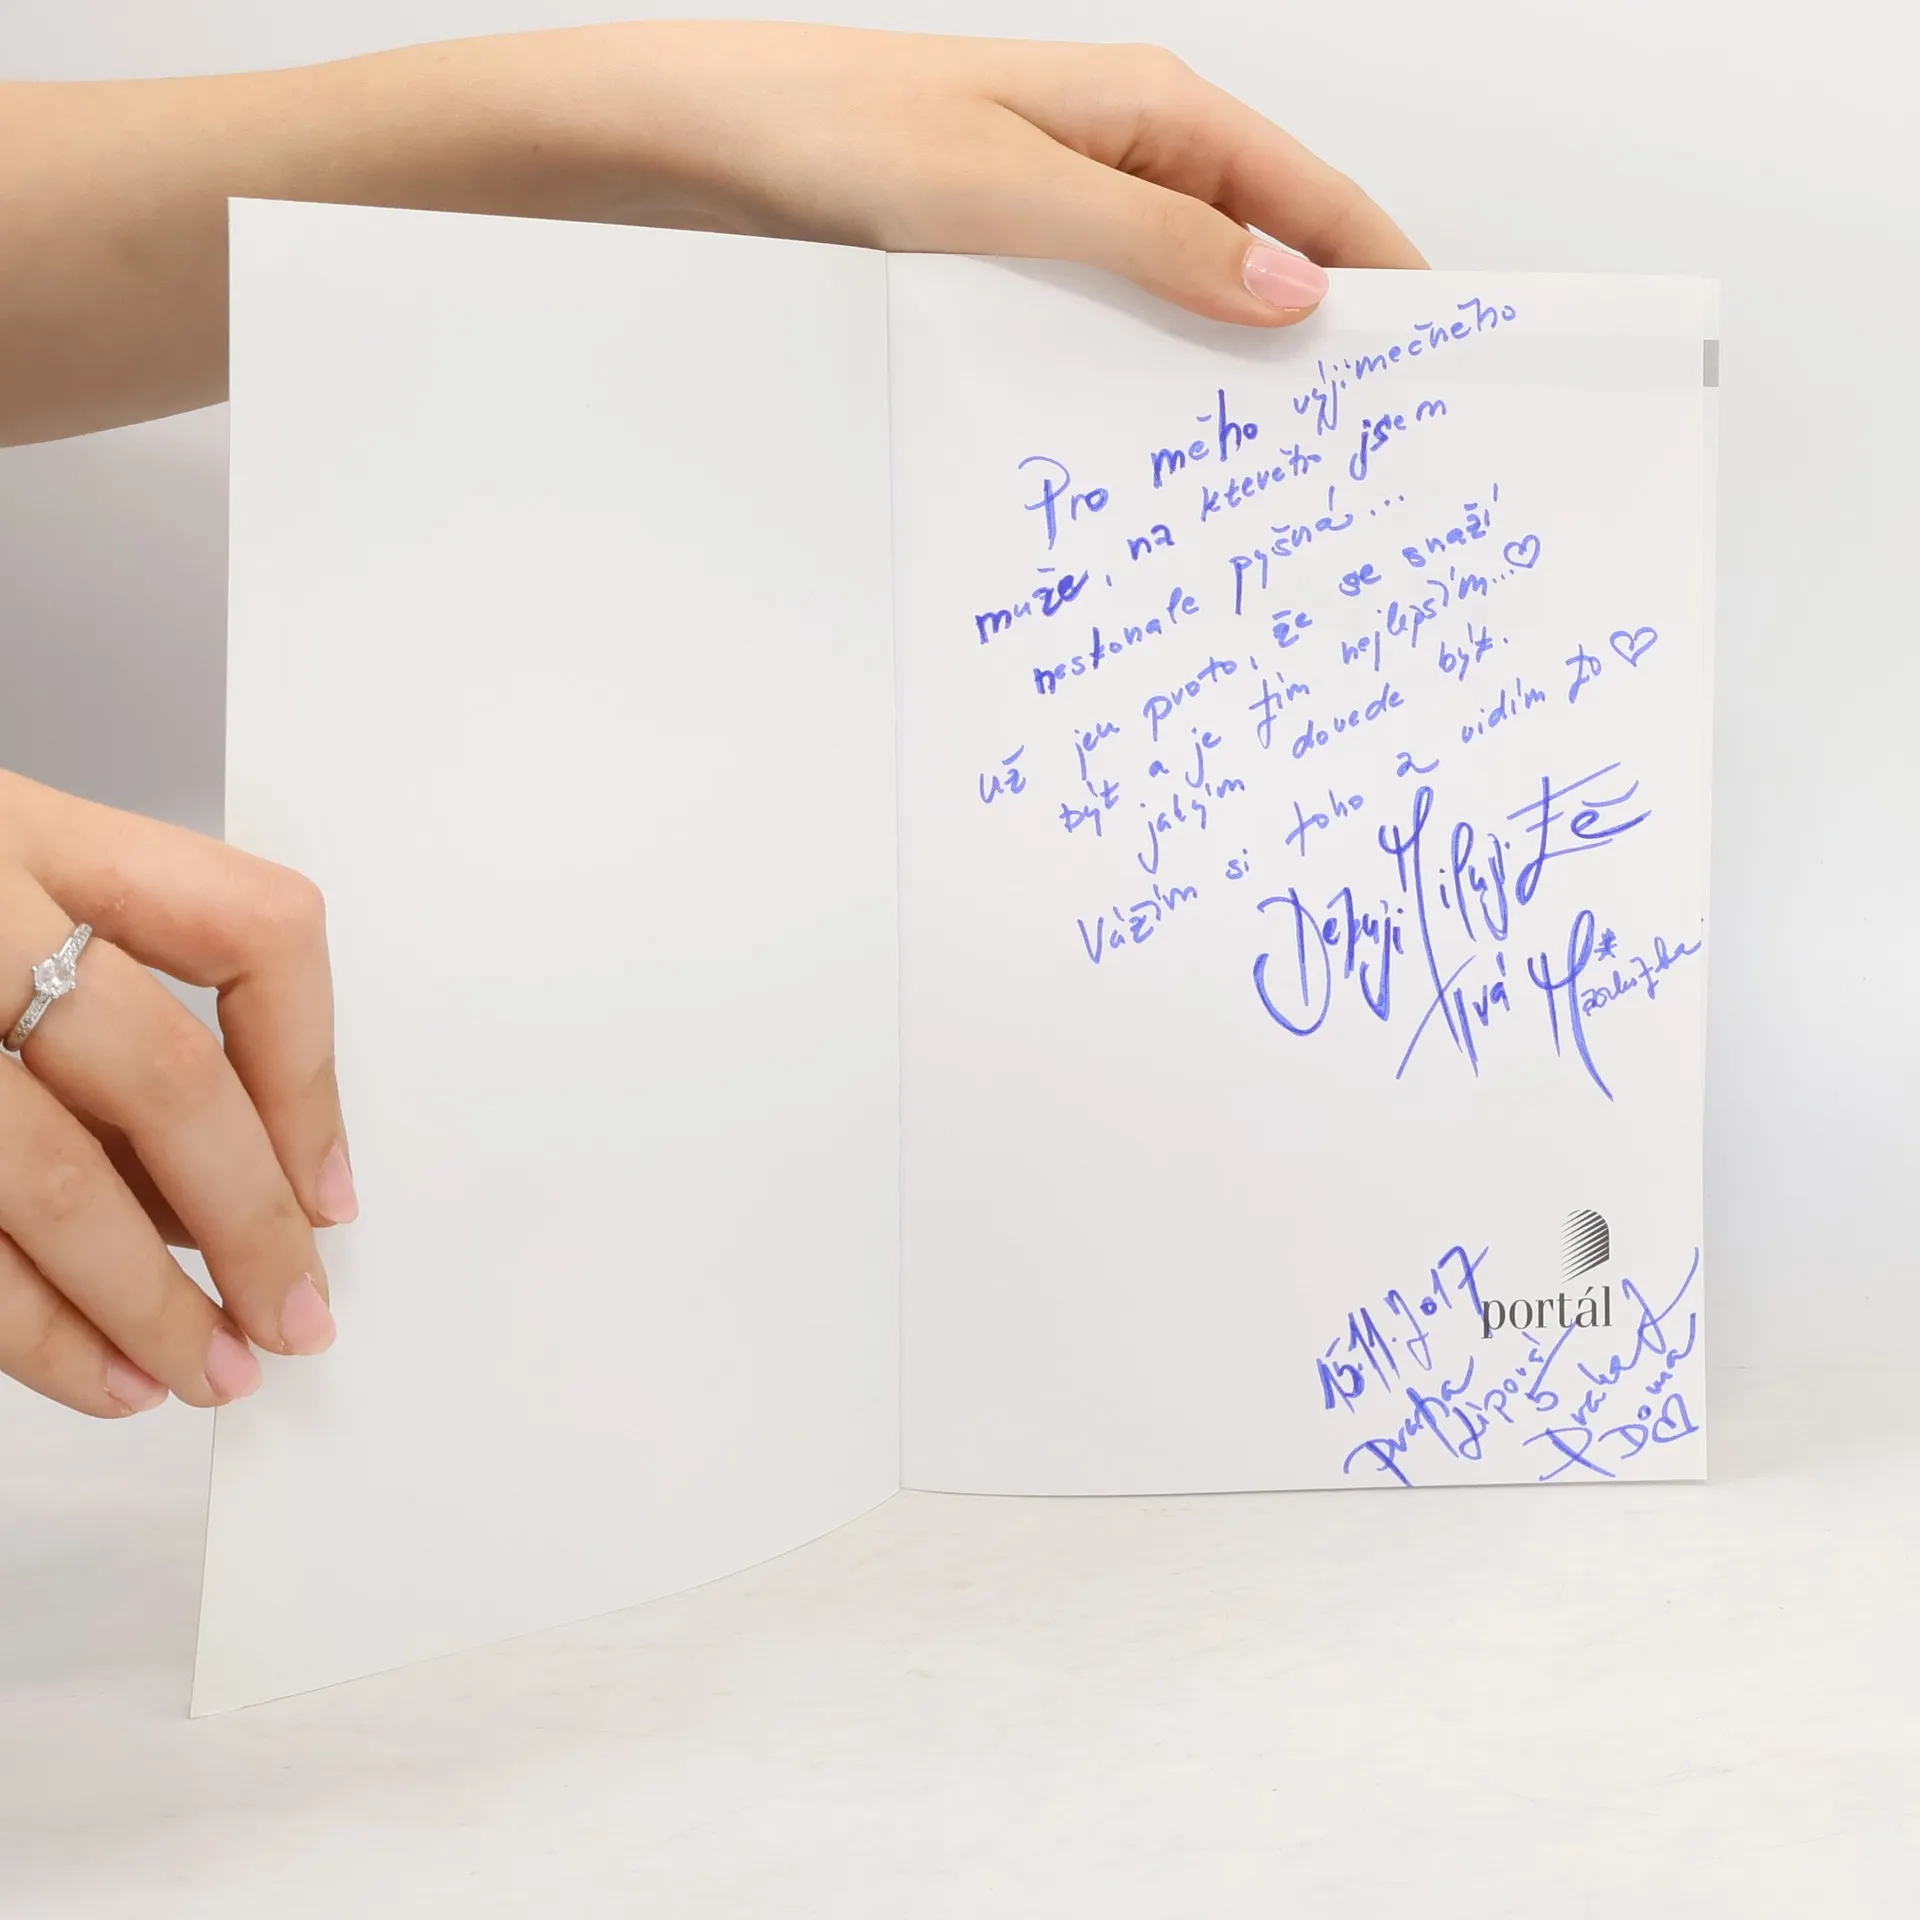 Pro mého výjimečného
muže, na kterého jsem
neskonale pyšná...
už jen proto, že se snaží
být a je tím nejlepším...♡
jakým dovede být.
Vážím si toho a vidím to ♡
Děkuji Miluji Tě
Tvá M*
15.11.2017
portál
Praha
Praha
Doma